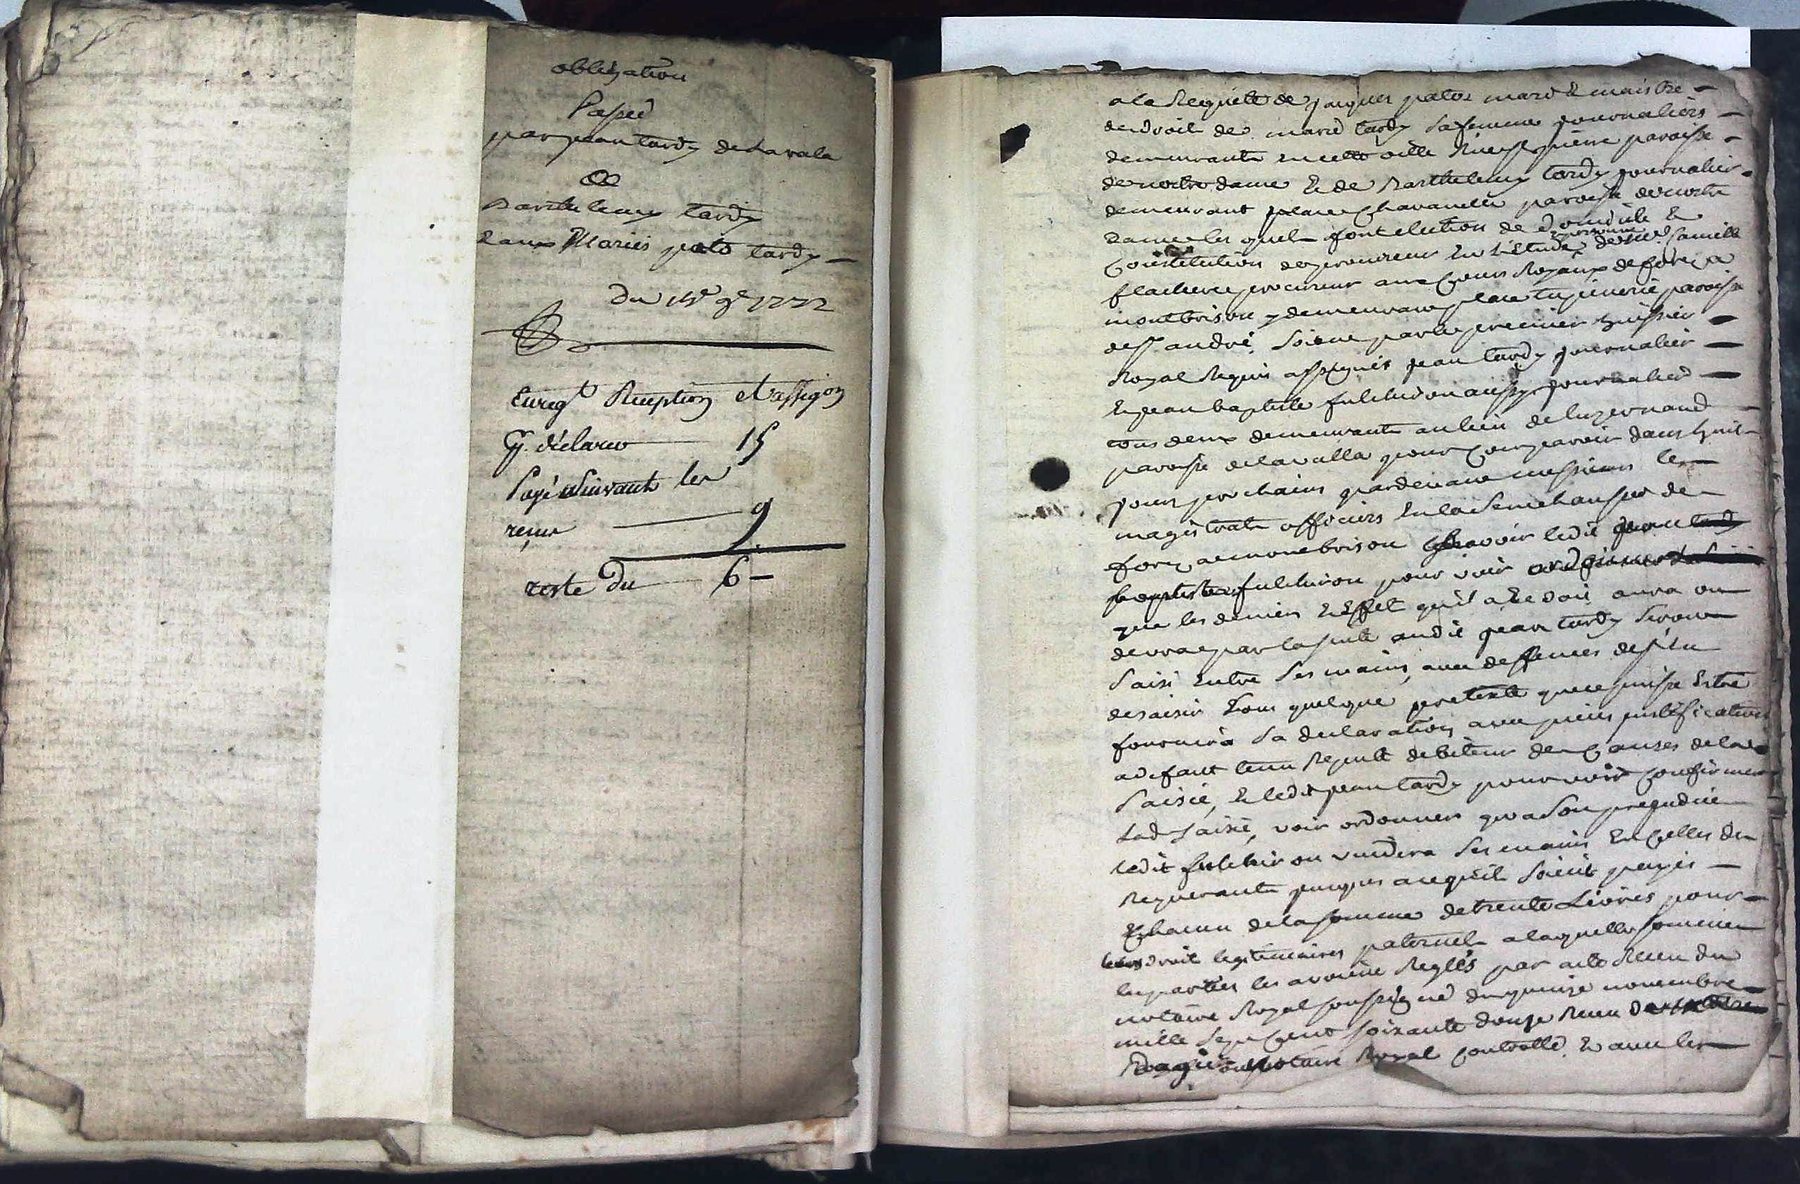 obligation
Passé
par jean tardy de Lavala
a
Barthelemy tardy
Et aux Mariés pato tardy
Du 15e 9e 1772
Enregt Reception et assigon
Cy. déclarer 15
Payé suivant les
reçus 9
reste du 6
a la Requete de jaques patot mari & maistre
des droit de marie tardy sa femme journaliers
demeurants en cette ville Rue st pierre paroisse
de nostre dame & de Barthelemy tardy journalier
demeurant place Chavanelle paroisse de nostre
dame les quels font election de domicile &
Constitution de procureur En l'étude et personne de me Camille
flacheron procureur aux Cours Royaux de forez a
montbrison y demeurant place paroisse
de st andré, Soient par le premier huissier
Royal Requis assignés jean tardy journalier
Et jean baptiste fulchiron aussy journalier
tous deux demeurants au lieu de luzernaud
paroisse de lavalla pour Comparoir dans huit
jours prochains pardevant messieurs les
magistrats officiers En la Senechaussée de
forez a montbrison Scavoir ledit jean
baptiste fulchiron pour voir ordonner
que les deniers & Effet qu'il a Et doit aura ou
devra par la suite audit jean tardy Seront
Saisi Entre Ses mains, avec deffences de s'en
desaisir Sous quelque pretexte que ce puisse Estre
fournira Sa declaration avec pieces justificatives
a defaut tenu Reputé debiteur des Causes de la
Saisie, Et ledit jean tardy pour voir Confirmer
lad. Saisie, voir ordonner qu'a Son prejudice
ledit fulchiron vuidera Ses mains En Celles des
Requerants jusques a ce qu'ils Soient payés
Chacun de la somme de trente Livres pour
leurs droits legitimaires paternels a laquelle somme
les parties les avoient Reglés par acte Recu du
notaire Royal soussigné du quinze novembre
mille Sept Cent Soixante douze Recu
notaire Royal Controllé & avec les